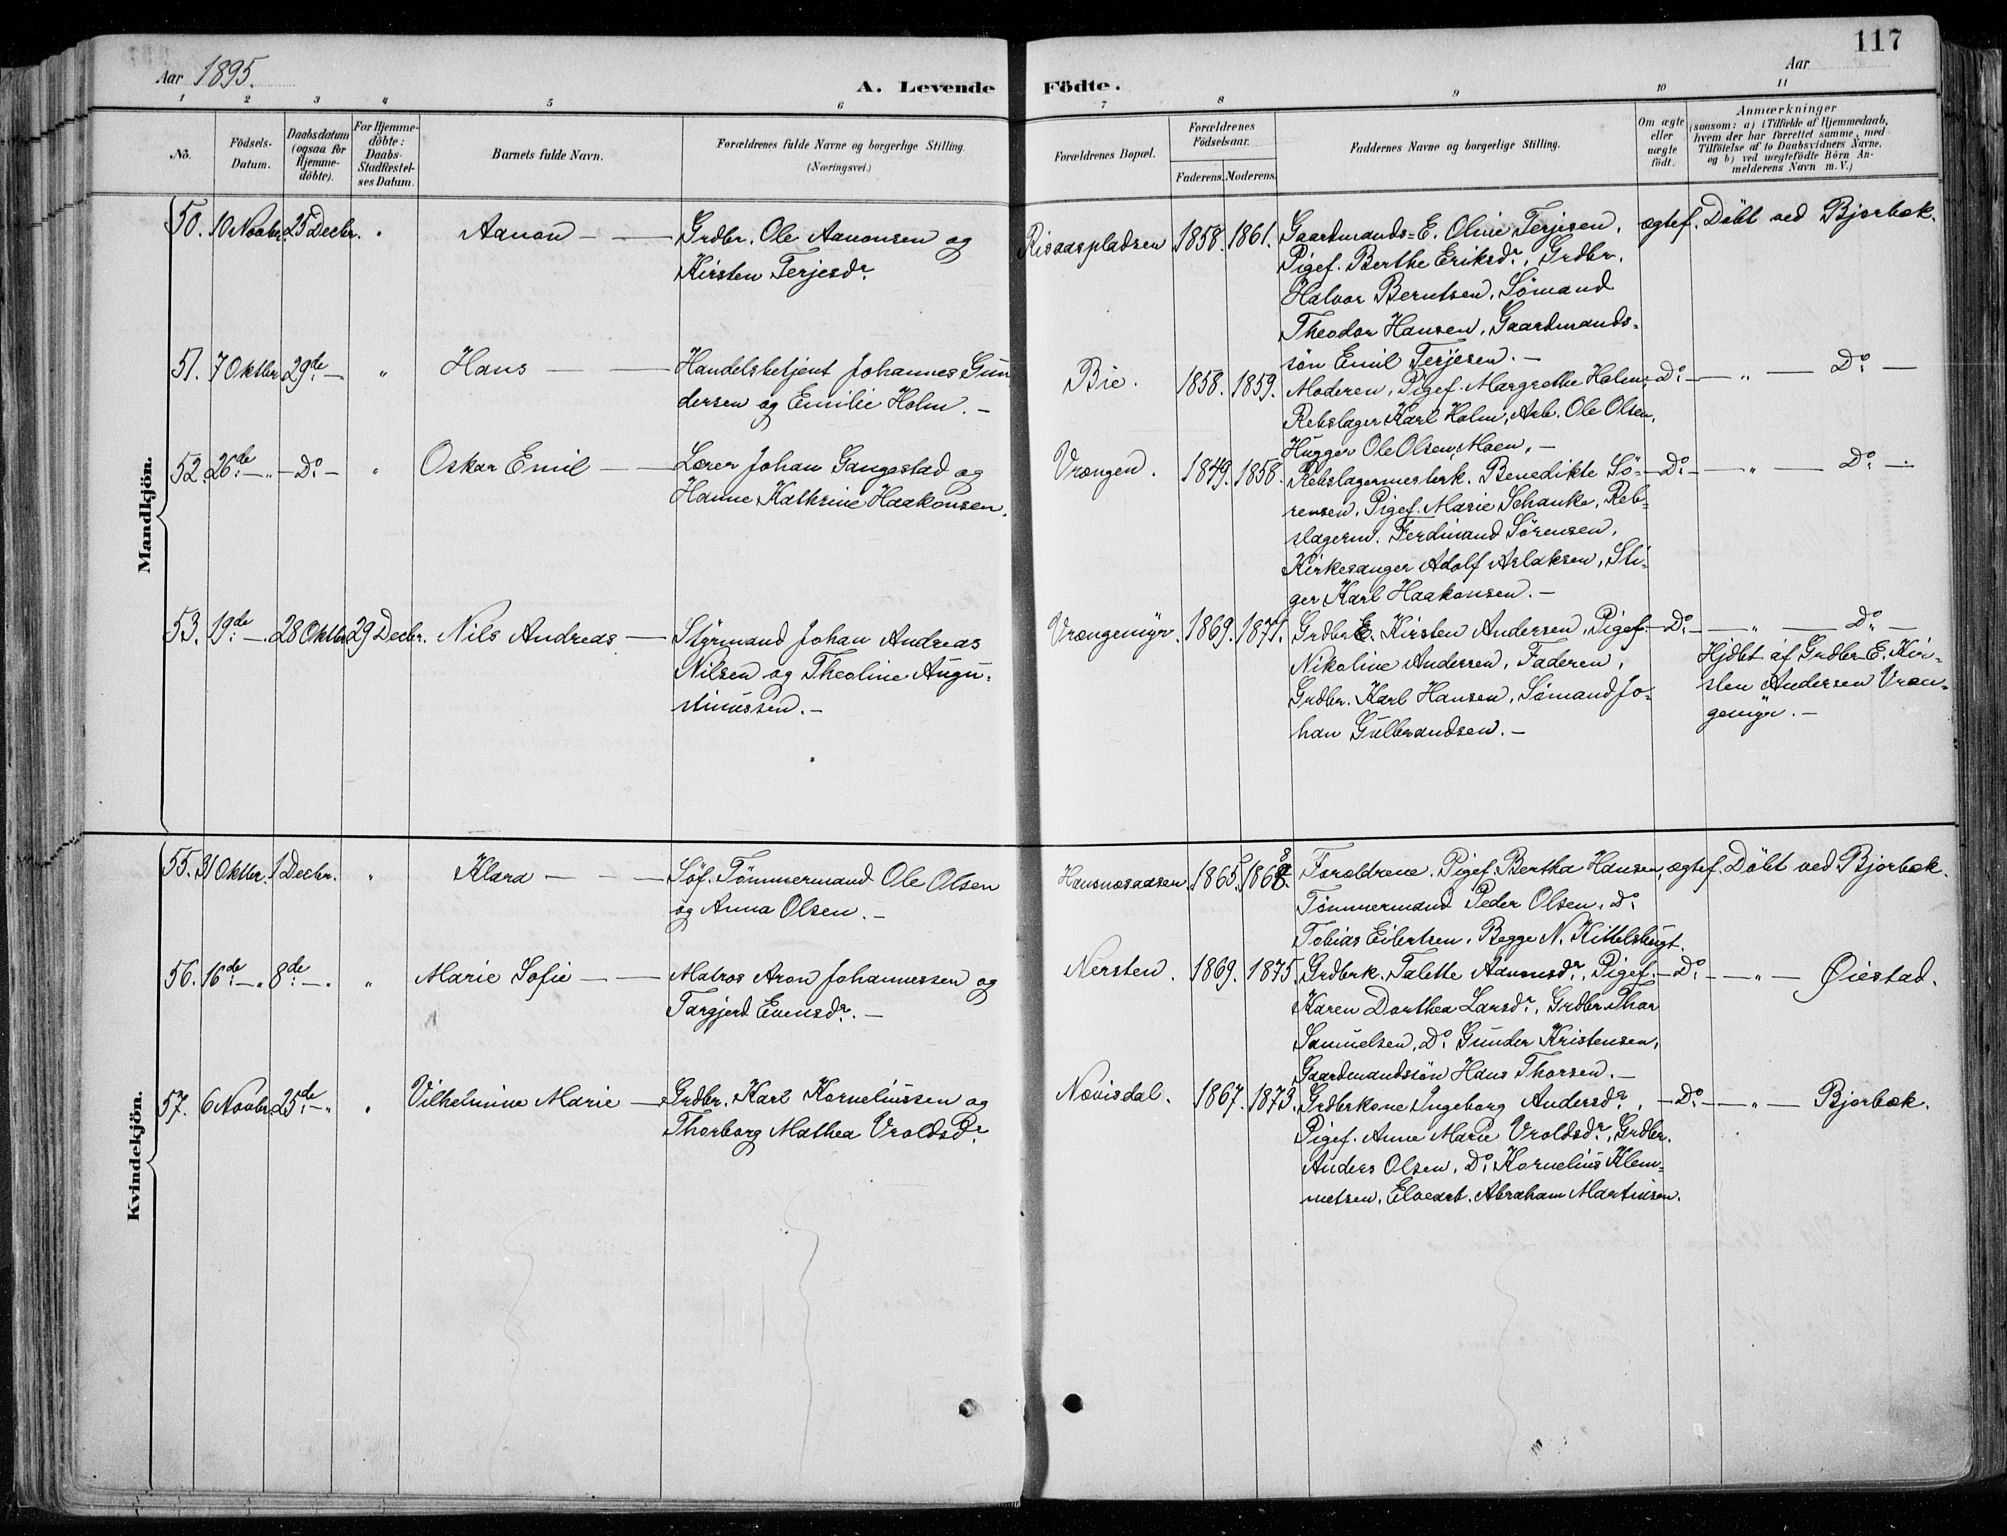 117
Aar 1895.
A. Levende Födte.
Aar
1 2 3 4 5 6 7 8 9 10 11
No.
Födsels-Datum.
Daabsdatum (ogsaa for Hjemme-döbte).
For Hjemme-döbte: Daabs-Stadfestel-ses Datum.
Barnets fulde Navn.
Forældrenes fulde Navne og borgerlige Stilling.
(Næringsvei.)
Forældrenes Bopæl.
Forældrenes Födselsaar.
Faderens. Moderens.
Faddernes Navne og borgerlige Stilling.
Om ægte eller uægte födt.
Anmærkninger
(saasom: a) i Tilfælde af Hjemmedaab,
hvem der har forrettet samme, med
Tilföielse af to Daabsvidners Navne,
og b) ved uægtefödte Börn An-
melderens Navn m. V.)
Mandkjön.
50. 10 Novbr. 25 Decbr. " Aanon — Grdbr. Ole Aanonsen og
Kirsten Terjesdr.
Risaaspladsen 1858. 1861. Gaardmands-E. Oline Terjesen, ægtef. Döbt ved Bjorbæk.
Pigef. Berthe Eriksdr., Grdbr.
Halvor Berntsen, Sömand
Theodor Hansen, Gaardmands-
sön Emil Terjesen. —
51. 7 Oktbr. 29de — " Hans — Handelsbetjent Johannes Gun
dersen og Emilie Holm. —
Bie. 1858. 1859. Moderen, Pigef. Margrethe Holm, — Do. — " — Do. —
Rebslager Karl Holm, Arb. Ole Olsen,
Hugger Ole Olsen, Moen. —
52. 26de — " — Do — " Oskar Emil — Lærer Johan Gangestad og
Hanne Kathrine Haakonsen.
Vrængen. 1849. 1858. Rebslagermesterk. Benedikte Sö- — Do. — " — Do. —
rensen, Pigef. Marie Schanke, Reb-
slagerm. Ferdinand Sörensen,
Kirkesanger Adolf Aslaksen, Sti-
ger Karl Haakonsen. —
53. 19de — . 28 Oktbr. 29 Decbr. Nils Andreas — Styrmand Johan Andreas
Nilsen og Theoline Augu-
stinussen. —
Vrængemyr. 1869. 1871. Grdbr E. Kirsten Andersen, Pigef. — Do. — " — Do. —
Nikoline Andersen, Faderen,
Grdbr. Karl Hansen, Sömand Jo-
han Gulbrandsen. —
Hjdbt af Grdbr E. Kir-
sten Andersen Vræn-
gemyr. —
Kvindekjön.
55. 31 Oktbr. 1 Decbr. " Klara — — — Söf. Tömmermand Ole Olsen
og Anna Olsen. —
Hansnæsaasen. 1865. Forældrene, Pigef. Bertha Hansen, ægtef. Döbt ved Bjorbæk.
Tömmermand Peder Olsen, Do.
Tobias Eilertsen, Begge N. Kittelsbugt.
56. 16de — " 8de — . " Marie Sofie — — Matros Aron Johannessen og
Targjerd Evensdr. —
Nersten. 1869. 1875. Grdbrk. Talette Aanonsdr., Pigef. — Do. — " — Öiestad.
Karen Dorthea Larsdr., Grdbr. Thor
Samuelsen, Do. Gunder Kristensen,
Gaardmandssön Hans Thorsen. —
57. 6 Novbr. 25de — " " Vilhelmine Marie — Grdbr. Karl Korneliussen og
Thorborg Mathea Vroldsdr.
Nævisdal. 1867. 1873. Grdbrkone Ingeborg Andersdr., — Do. — " — Bjorbæk.
Pigef. Anne Marie Vroldsdr., Grdbr.
Anders Olsen, Do. Kornelius Klem-
metsen, Elvearb. Abraham Martinsen.